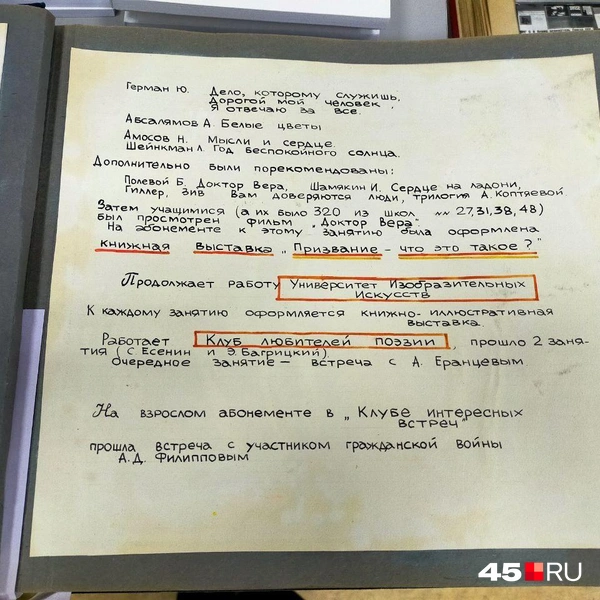 Герман Ю. Дело, которому служишь,
Дорогой мой человек,
Я отвечаю за все.
Абсалямов А. Белые цветы
Амосов Н. Мысли и сердце.
Шейнкман Л. Год беспокойного солнца.
Дополнительно были порекомендованы:
Полевой Б. Доктор Вера, Шамякин И. Сердце на ладони,
Гиллер, Зив Вам доверяются люди, трилогия А. Коптяевой.
Затем учащимися (а их было 320 из школ №№ 27,31,38,48)
был просмотрен фильм „Доктор Вера".
На абонементе к этому занятию была оформлена
книжная выставка „Призвание - что это такое?"
Продолжает работу Университет Изобразительных
Искусств
К каждому занятию оформляется книжно-иллюстративная
выставка.
Работает Клуб любителей поэзии, прошло 2 заня-
тия (С. Есенин и Э. Багрицкий).
очередное занятие — встреча с А. Еранцевым.
На взрослом абонементе в „Клубе интересных
встреч"
прошла встреча с участником гражданской войны
А.Д. Филипповым
45.RU